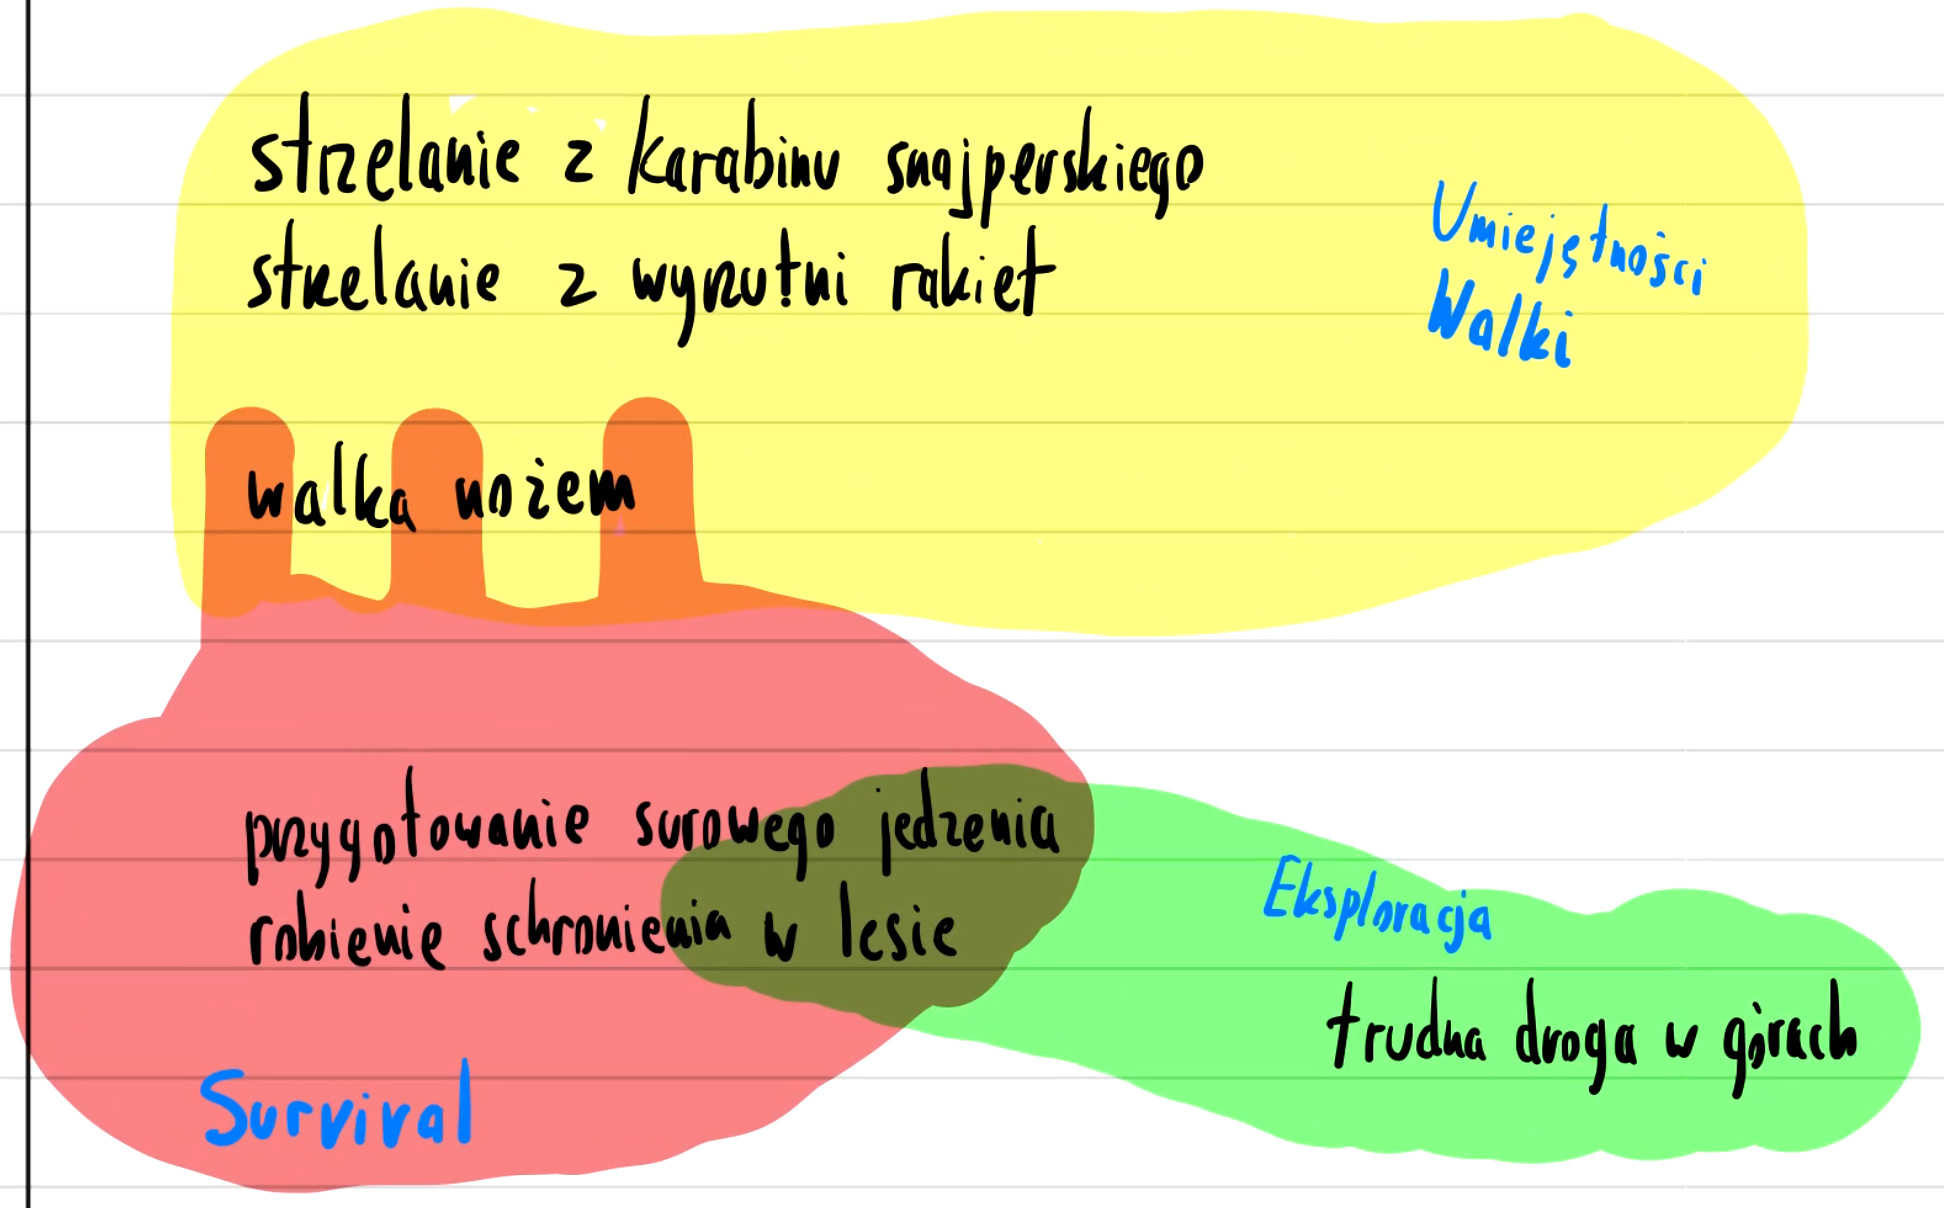 strzelanie z karabinu snajperskiego
strzelanie z wyrzutni rakiet
Umiejętności
Walki
walka nożem
przygotowanie surowego jedzenia
robienie schronienia w lesie
Eksploracja
trudna droga w górach
Survival